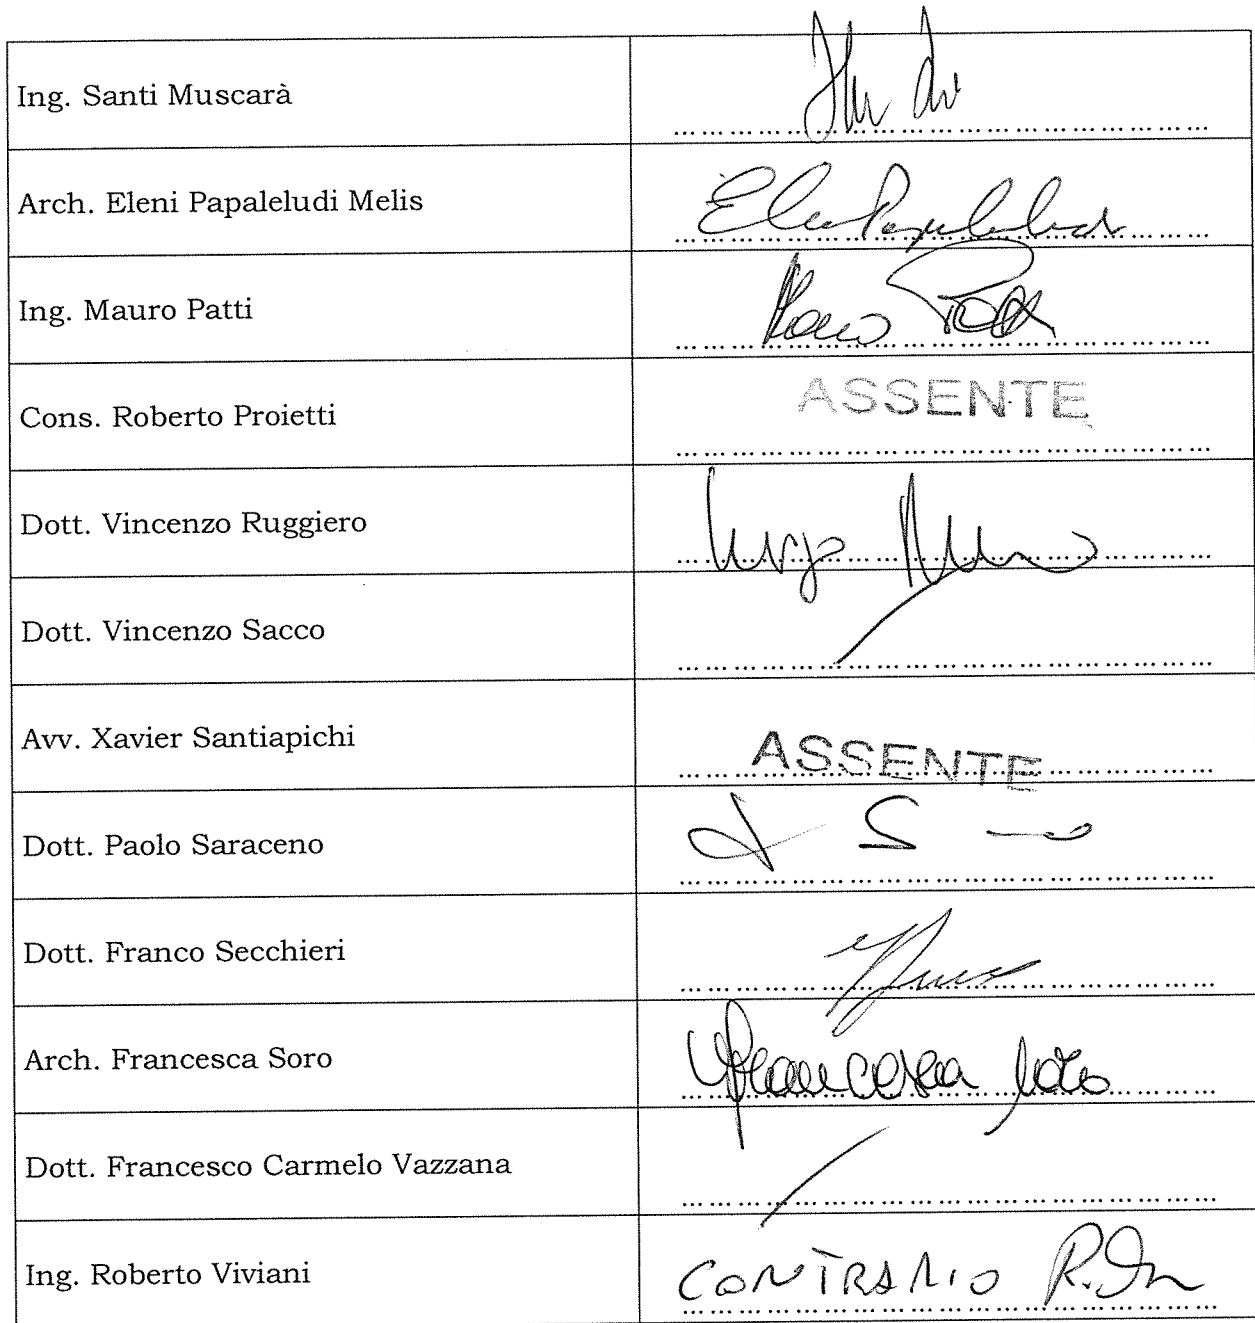 Ing. Santi Muscarà
Arch. Eleni Papaleludi Melis
Ing. Mauro Patti
Cons. Roberto Proietti
ASSENTE
Dott. Vincenzo Ruggiero
Dott. Vincenzo Sacco
Avv. Xavier Santiapichi
ASSENTE
Dott. Paolo Saraceno
Dott. Franco Secchieri
Arch. Francesca Soro
Francesca Soro
Dott. Francesco Carmelo Vazzana
Ing. Roberto Viviani
CONTRARIO